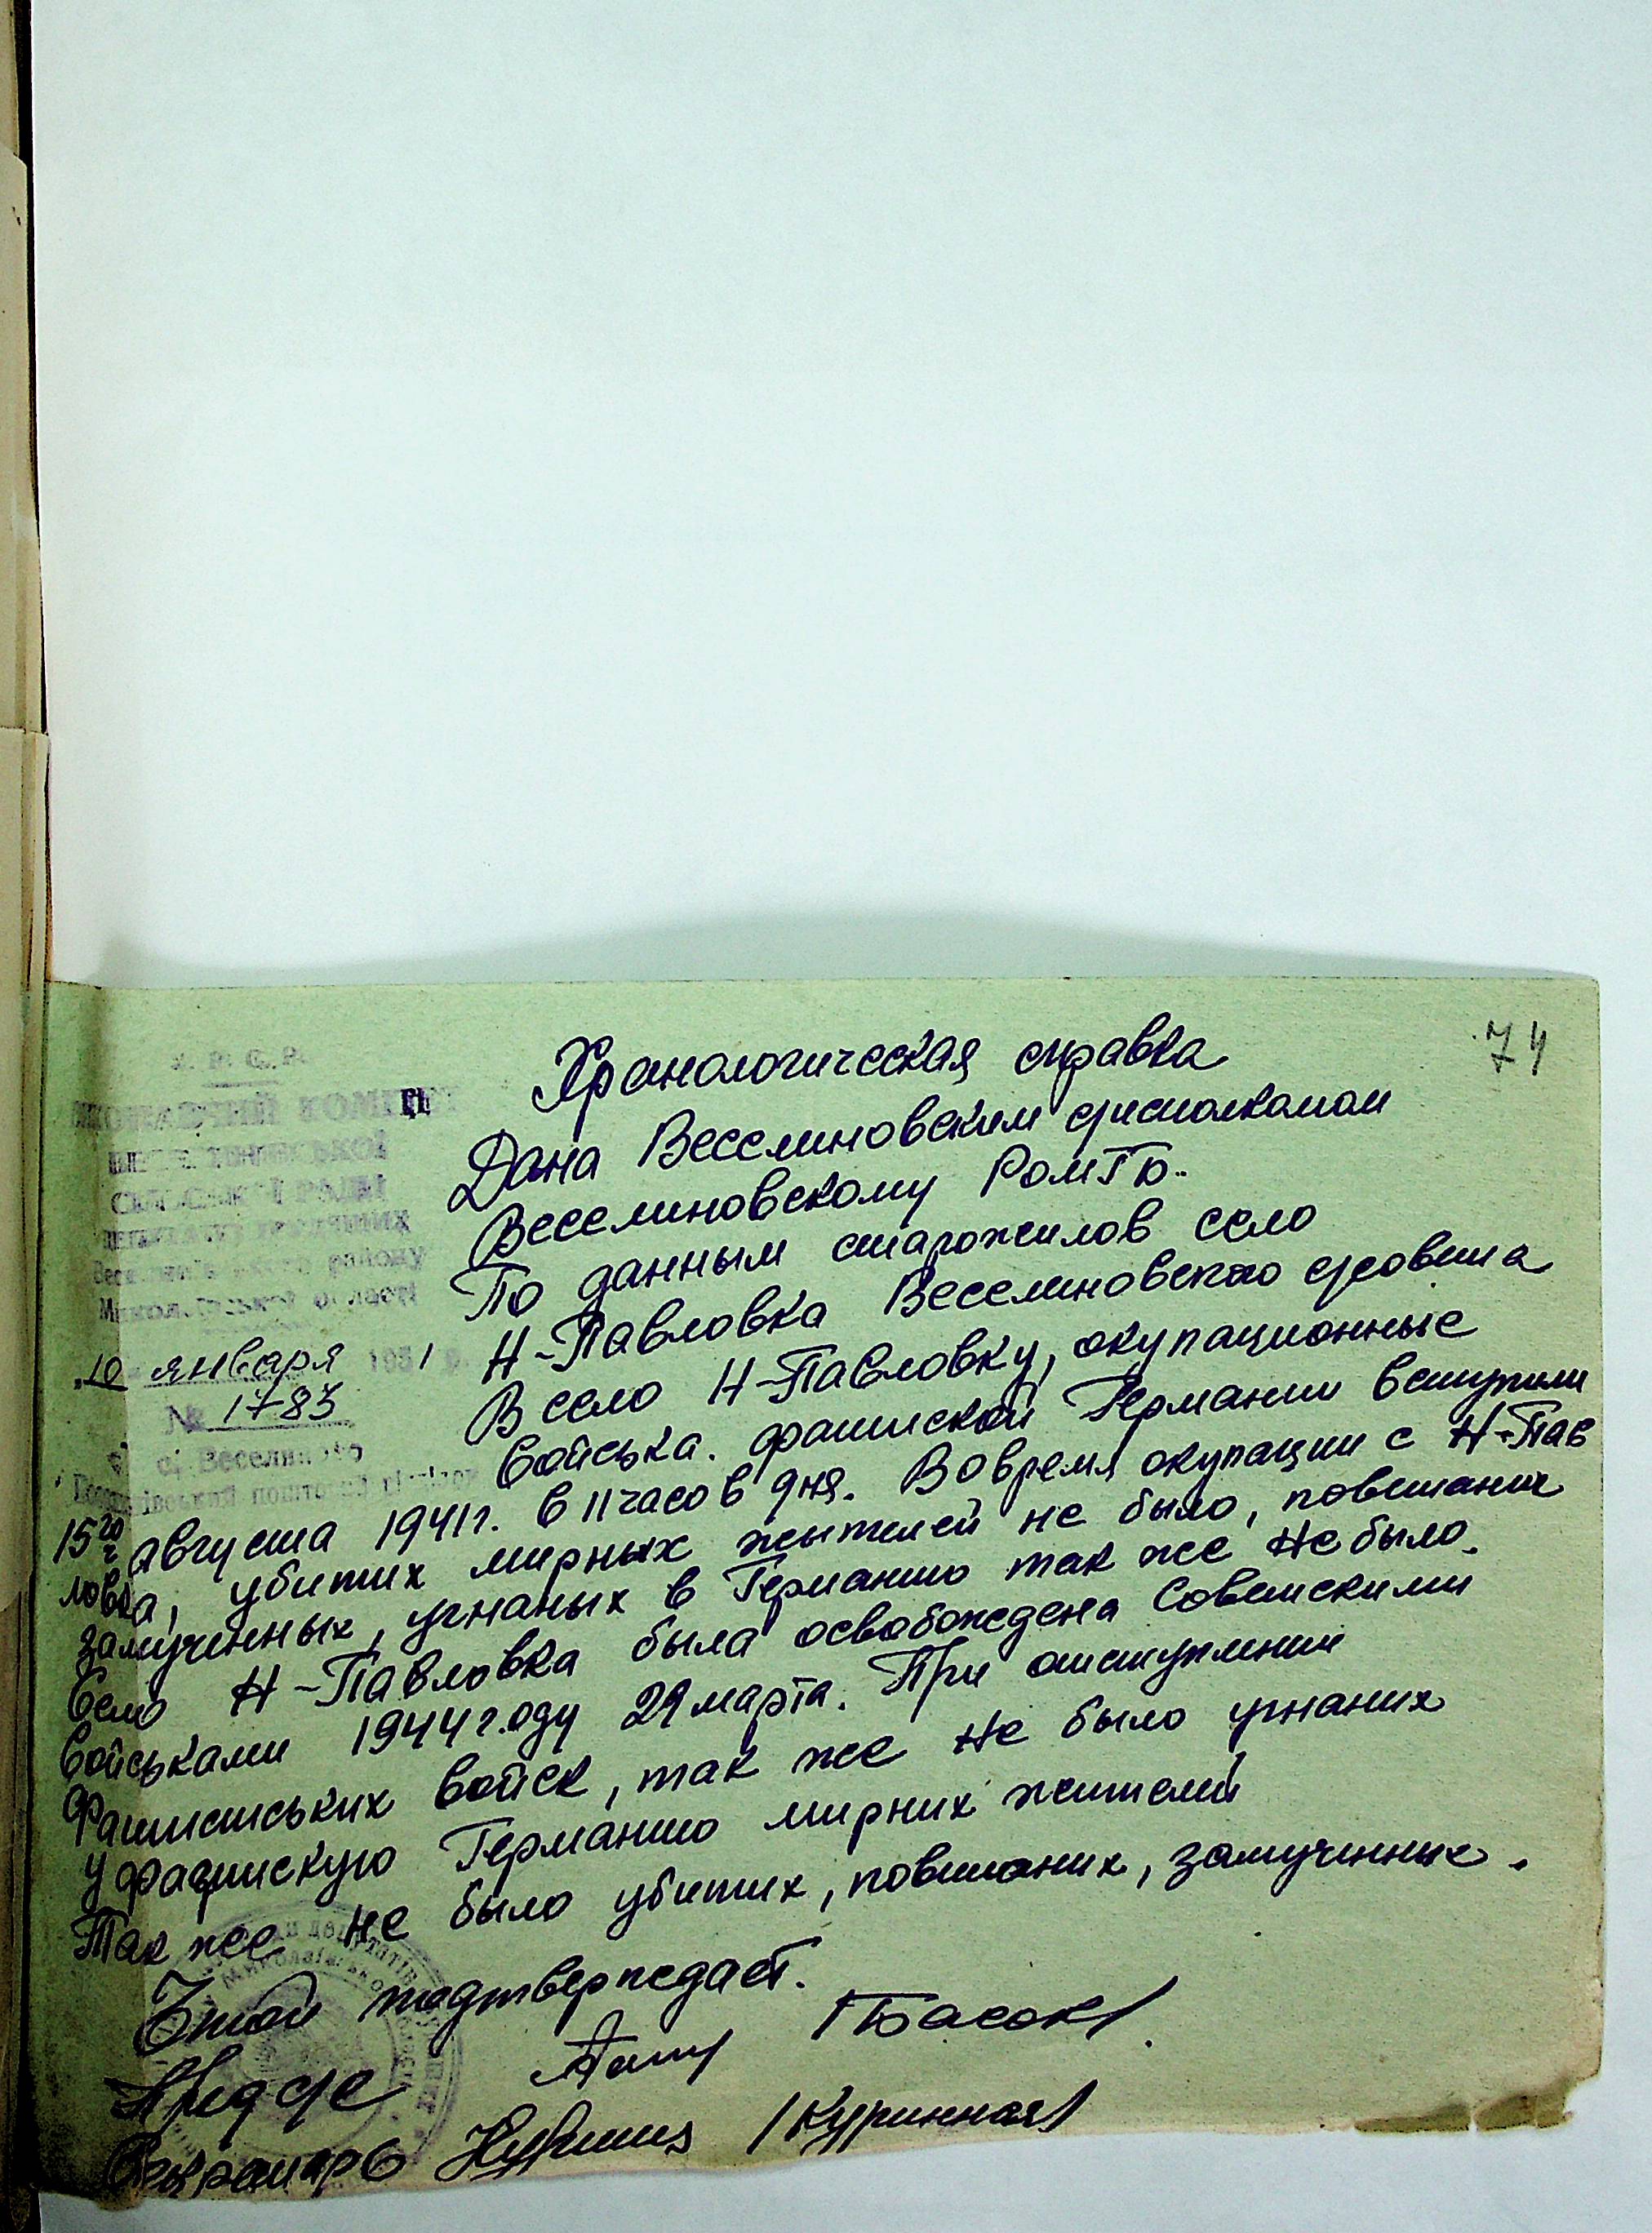 74
У. Р. С. Р.
ВИКОНАВЧИЙ КОМІТЕТ
ВЕСЕЛИНІВСЬКОЇ
СІЛЬСЬКОЇ РАДИ
ДЕПУТАТІВ ТРУДЯЩИХ
Веселинівського району
Миколаївської області
"10 января 1951 р.
№ 1783
с. Веселиново
Хранологическая справка
Дана Веселиновским
Веселиновскому
По данным старожилов село
Н-Павловка Веселиновского
В село Н-Павловку, окупационные
войська. фашиской Германии вступили
15го августа 1941г. в 11 часов дня. Вовремя окупации с Н-Пав
ловка, убитих мирных жителей не было, повешаних
замученных, угнаных в Германию так же не было.
Село Н-Павловка была освобождена Советскими
войськами 1944г.оду 29 марта. При отступлении
Фашистських войск, так же не было угнаних
у фашискую Германию мирних жителей
Так же не было убитих, повешаних, замученних.
подтверждает.
Секретарь /Куринная/